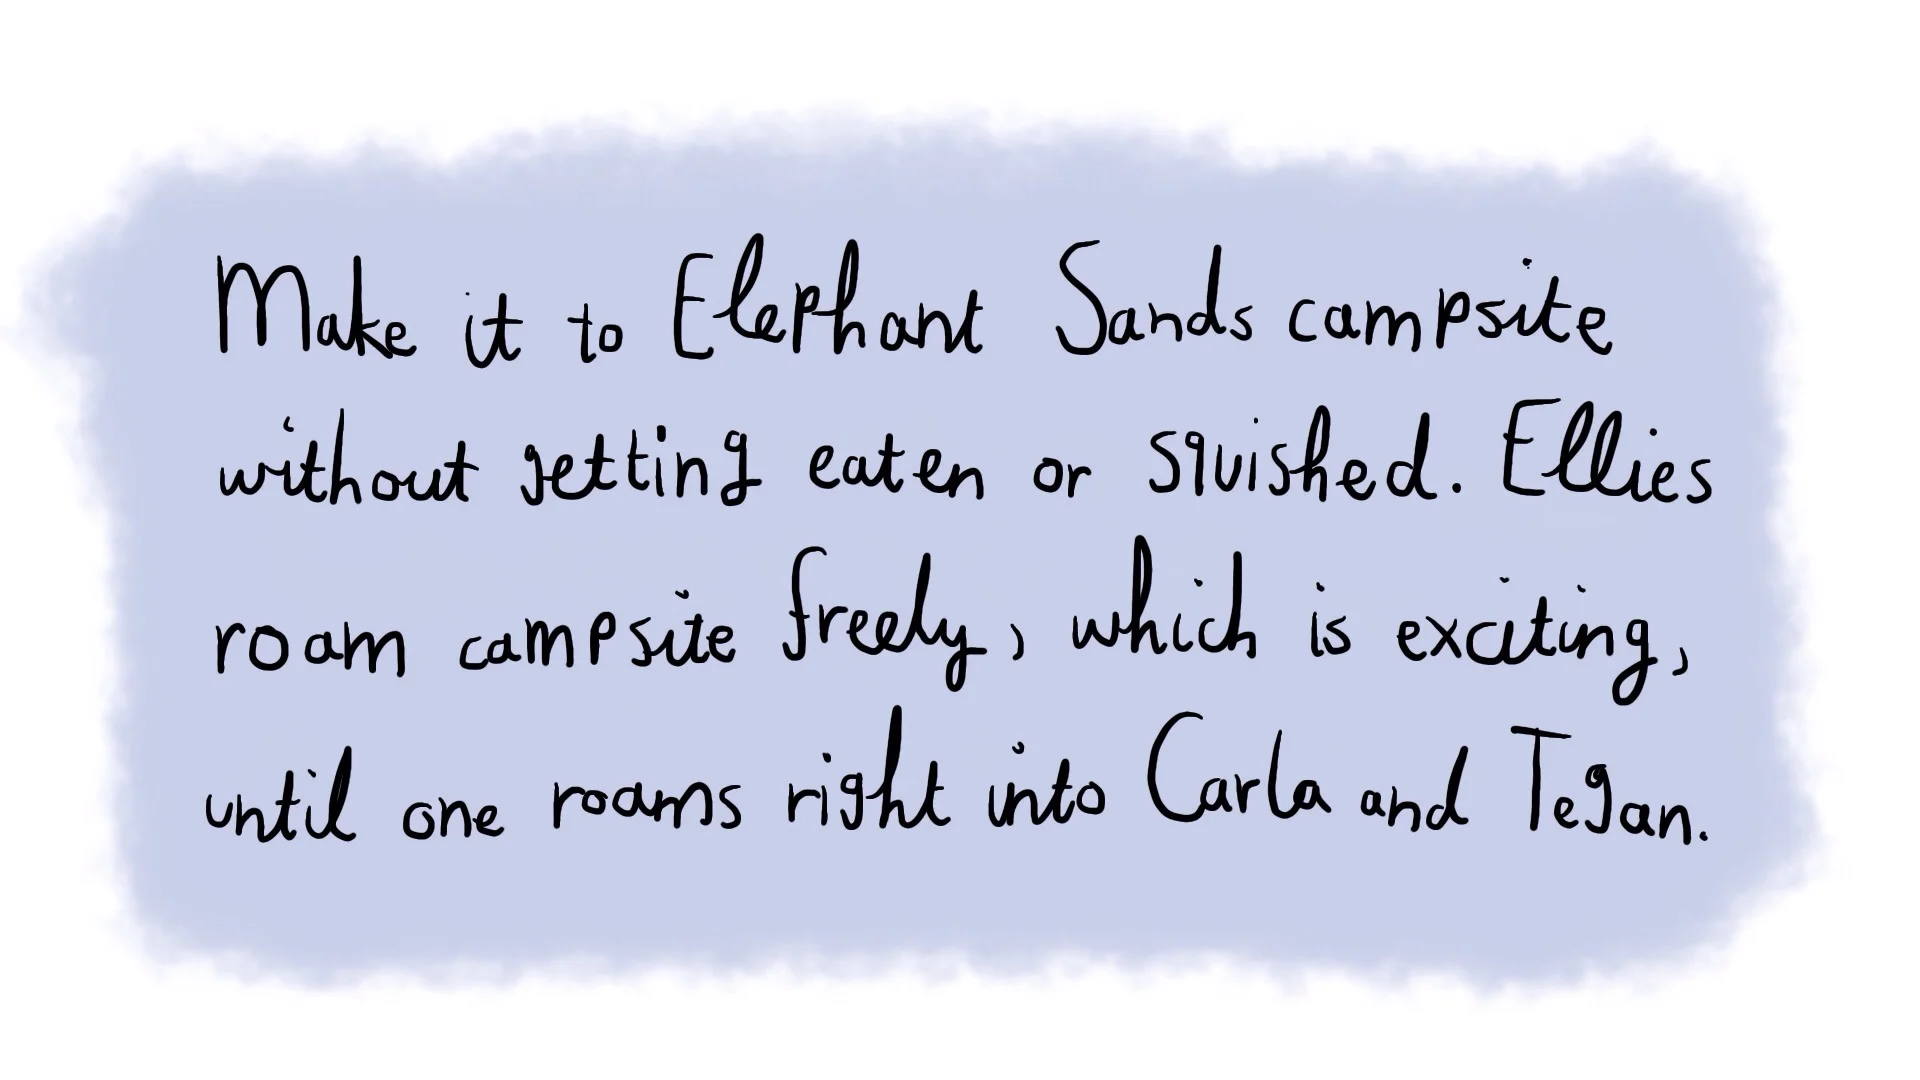 Make it to Elephant Sands campsite
without getting eaten or squished. Ellies
roam campsite freely, which is exciting,
until one roams right into Carla and Tegan.